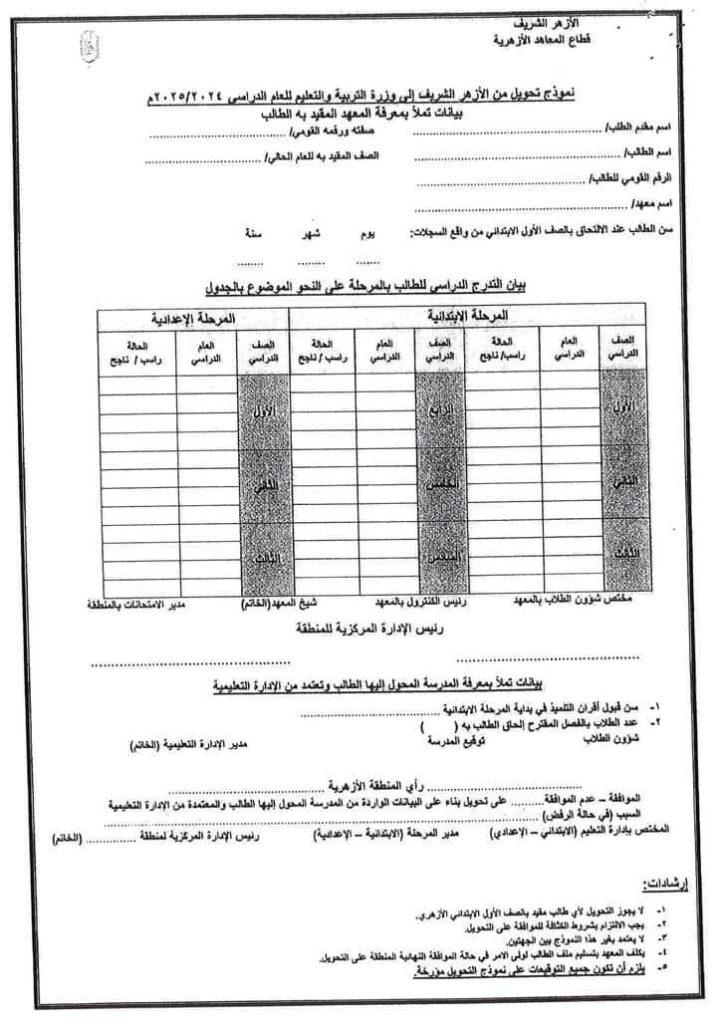 الأزهر الشريف
قطاع المعاهد الأزهرية
نموذج تحويل من الأزهر الشريف إلى وزرة التربية والتعليم للعام الدراسى ٢٠٢٥/٢٠٢٤م
بيانات تملأ بمعرفة المعهد المقيد به الطالب
اسم مقدم الطلب/ ........................ صفته ورقمه القومي/ ........................
اسم الطالب/ ........................ الصف المقيد به للعام الحالي/ ........................
الرقم القومي للطالب/ ........................
اسم معهد/ ........................
سن الطالب عند الالتحاق بالصف الأول الابتدائي من واقع السجلات: يوم شهر سنة
....... ....... .......
بيان التدرج الدراسي للطالب بالمرحلة على النحو الموضوع بالجدول
المرحلة الابتدائية المرحلة الإعدادية
الصف الدراسي العام الدراسي الحالة راسب/ ناجح الصف الدراسي العام الدراسي الحالة راسب / ناجح الصف الدراسي العام الدراسي الحالة راسب/ ناجح
الأول الرابع الأول
الثاني الخامس الثاني
الثالث السادس الثالث
مختص شؤون الطلاب بالمعهد رئيس الكنترول بالمعهد شيخ المعهد(الخاتم) مدير الامتحانات بالمنطقة
رئيس الإدارة المركزية للمنطقة
........................ ........................
بيانات تملأ بمعرفة المدرسة المحول إليها الطالب وتعتمد من الإدارة التعليمية
١- سن قبول أقران التلميذ في بداية المرحلة الابتدائية ........................
٢- عدد الطلاب بالفصل المقترح إلحاق الطالب به ( )
شؤون الطلاب توقيع المدرسة مدير الإدارة التعليمية (الخاتم)
........................ رأي المنطقة الأزهرية ........................
الموافقة – عدم الموافقة......... على تحويل بناء على البيانات الواردة من المدرسة المحول إليها الطالب والمعتمدة من الإدارة التعليمية
السبب (في حالة الرفض) ........................
المختص بإدارة التعليم (الابتدائي – الإعدادي) مدير المرحلة (الابتدائية – الإعدادية) رئيس الإدارة المركزية لمنطقة .............. (الخاتم)
إرشادات:
١- لا يجوز التحويل لأي طالب مقيد بالصف الأول الابتدائي الأزهري.
٢- يجب الالتزام بشروط الكثافة للموافقة على التحويل.
٣- لا يعتمد بغير هذا النموذج بين الجهتين.
٤- يكلف المعهد بتسليم ملف الطالب لولى الامر في حالة الموافقة النهائية المنطقة على التحويل.
٥- يلزم أن تكون جميع التوقيعات على نموذج التحويل مؤرخة.